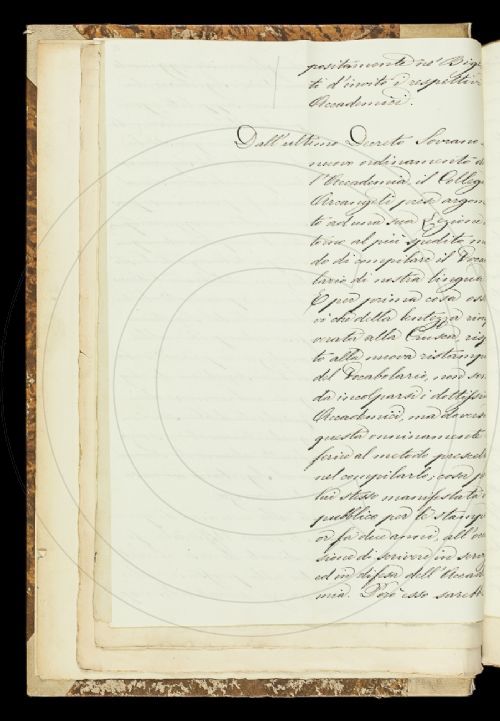 positamente ne' Bigl
ti d'invito i respettivi
Accademici.
Dall'ultimo Decreto Sovrano
nuovo ordinamento d
l'Accademia, il Colleg
Arcangeli prese argom
to ad una sua Lezione
torno al più spedito mo
do di compilare il Voca
lario di nostra lingua
E per prima cosa oss
vò che della lentezza rim
verata alla Crusca, risp
to alla nuova ristampa
del Vocabolario, non son
da incolparsi i dottissi
Accademici, ma doversi
questa onninamente
ferire al metodo prescelto
nel compilarlo; cosa
lui stesso manifestata
pubblico per le stampe
or fa due anni, all'occ
sione di scrivere in
ed in difesa dell'Accade
mia. Però esso sarebb